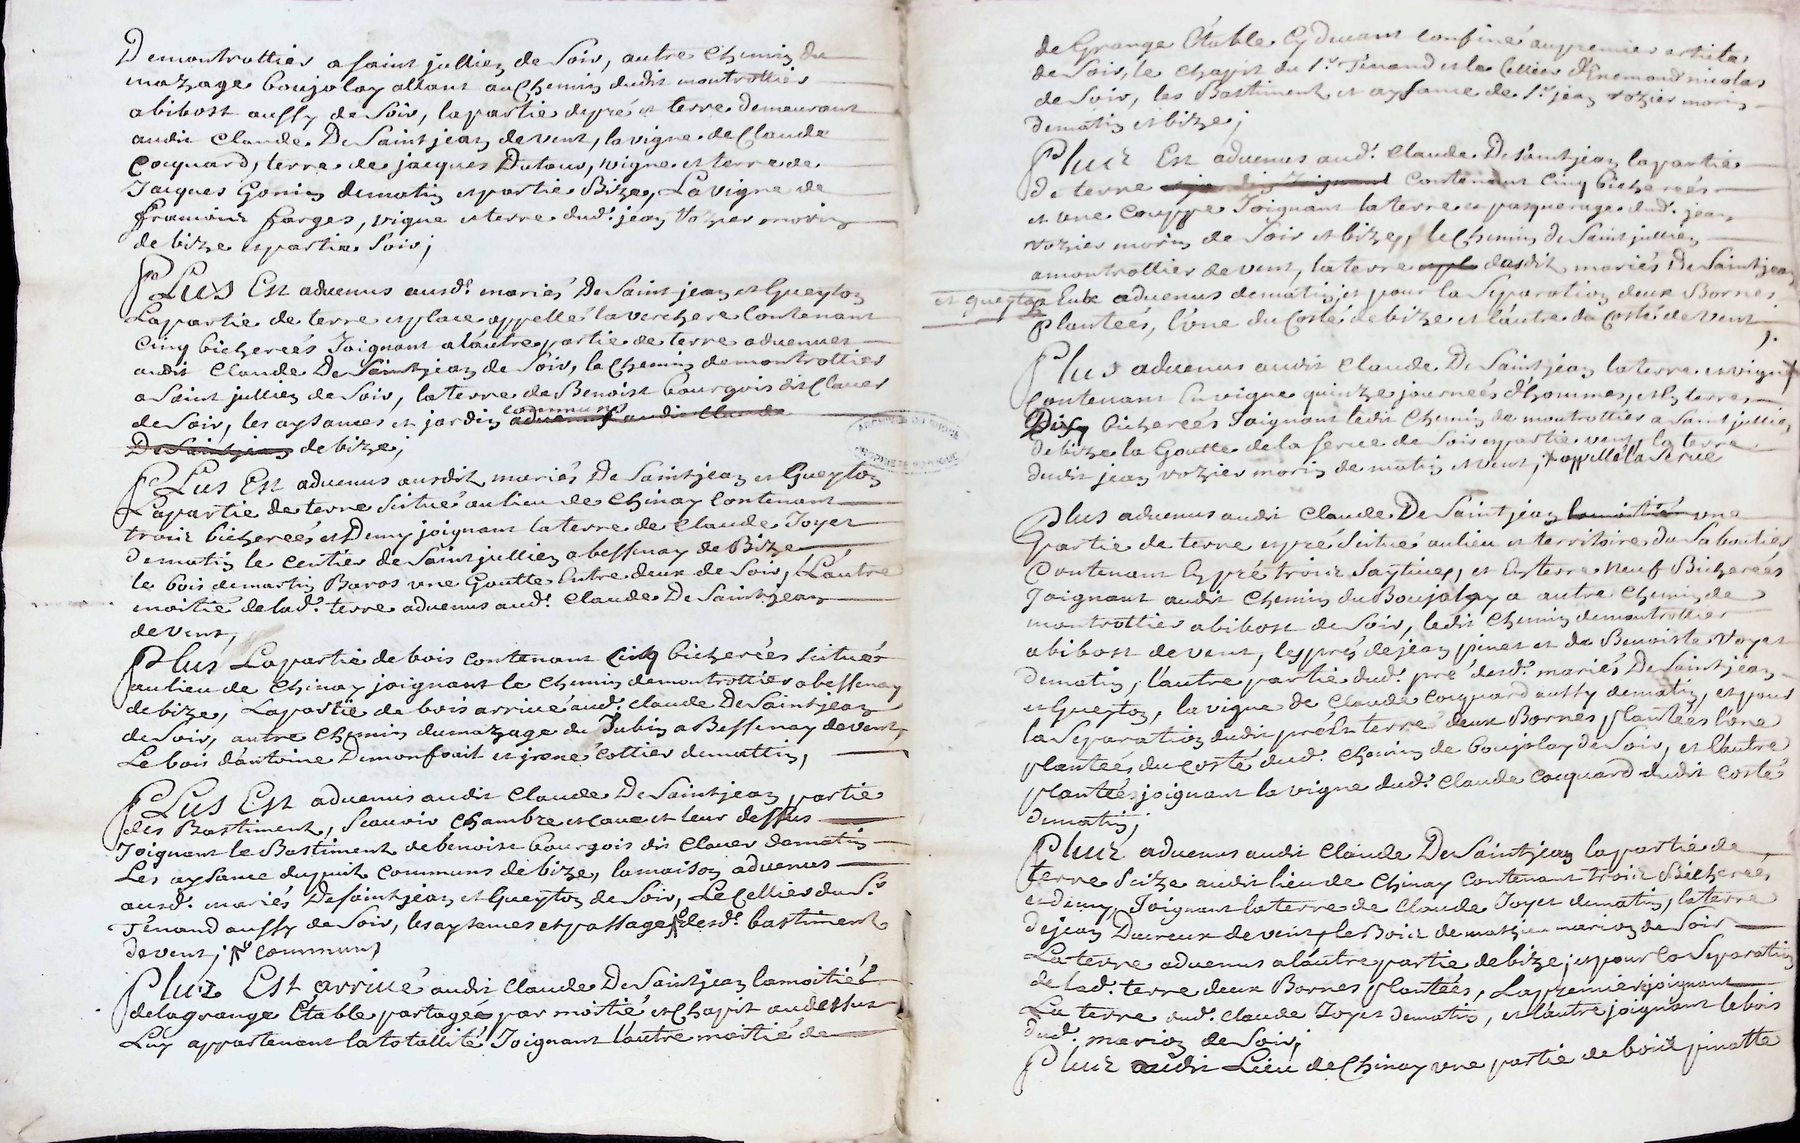 Demontrottier a saint jullien de Soir, autre chemin du
mazage boujolay allant au Chemin dudit montrottier
abibost aussy de Soir, la partie de pré et terre demeurant
audit Claude De Saint jean de vent, la vigne de Claude
Cocquard, terre de jacques Dutour, vigne et terre de
Jacques Gonin de matin et partie Bize, La vigne de
francoiz farges, vigne et terre dud. jean Vozier morin
de bize et partie Soir;
PLus Est aduenus ausd. mariés De Saint jean et Gueyton
La partie de terre et place appellé la verchere Contenant
cinq bicherées Joignant a l'autre partie de terre aduenus
audit Claude De Saint jean de Soir, le Chemin demontrottier
a Saint jullien de Soir, la terre de Benoist bourgois dit Claver
de Soir, les aysances et jardin communs aduenus audit Claude
De Saint jean de bize;
PLus Est aduenus ausdit mariés De Saint jean et Gueyton
La partie de terre scitué au lieu de Chinay Contenant
troiz bicherées et Demy joignant la terre de Claude Joyet
de matin le centier de Saint jullien a bessenay de Bize
le bois de martin Baros une Goutte Entre deux de Soir, L'autre
moitié de lad. terre aduenus aud. Claude De Saint jean
de vent,
Plus La partie de bois contenant Cinq bicherées scitués
au lieu de Chinay joignant le chemin demontrottier a bessenay
de bize, La partie de bois arrivé aud. Claude De Saint jean
de Soir, autre Chemin du mazage du Jubin a Bessenay de vent,
Le bois d'antoine Demonfrait et jrené Cottier de mattin,
PLus Est aduenus audit Claude De Saint jean partie
des Bastiment, Scauoir Chambre et Caue et leur dessus
Joignant le Bastiment de benoist bourgois dit Claver de matin
Les aysance du puit communs de bize, la maison aduenus
ausd. mariés De Saint jean et Gueyton de Soir, Le Cellier du Sr.
Ténand aussy de Soir, les aysences et passage desd. bastiment
de vent; communs
Pluz Est arriué audit Claude De Saint jean la moitiée
de la grange Etable partagée par moitié et Chapit au dessus
Luy appartenant la totallité Joignant l'autre moitié de
de Grange Etable Cy deuant confiné au premier article
de Soir, le chapit du Sr. Ténand et le Cellier d'Enemond nicolas
de Soir, les Bastiment et aysance de Sr. jean vozier morin
de matin et bize;
Pluz Est aduenus aud. Claude De Saint jean la partie
de terre et jardin Joignant Contenant Cinq bicherées
et une Couppe Joignant la terre et pasquerage dud. jean
vozier morin de Soir et bize, le Chemin de Saint jullien
a montrottier de vent, la terre ausdit mariés De Saint jean
et gueyton Eux aduenus de matin; et pour la Separation deux Bornes
plantées, l'une du Costé de bize et l'autre du costé de vent;
Plus aduenus audit Claude De Saint jean la terre et vigne
Contenant En vigne quinze journées d'hommes, et En terre
Dix bicherées Joignant ledit Chemin de montrottier a Saint jullien
de bize la Goutte de la serue de Soir et partie vent, la terre
dudit jean vozier morin de matin et vent; appellé la Serue
Plus aduenus audit Claude De Saint jean la moitié une
partie de terre et pré Scitué au lieu et territoire du Sabottier
Contenant En pré troiz Saytiues, et En terre neuf Bicherées
Joignant audit Chemin du Boujolay a autre Chemin de
montrottier a bibost de Soir, ledit Chemin demontrottier
abibost de vent, les prés de jean pinet et de Benoiste Voyet
de matin, l'autre partie dud. pré desd. mariés De Saint jean
et Gueyton, la vigne de Claude Cocquard aussy de matin, et pour
la Separation dudit pré En terre deux Bornes plantées l'une
plantée du costé dud. Chemin de boujolay de Soir, et l'autre
plantée joignant la vigne dud. Claude Cocquard dudit Costé
de matin;
Pluz aduenus audit Claude De Saint jean la partie de
terre Scize audit lieu de Chinay Contenant troiz Bicherées
et demy, Joignant la terre de Claude Joyet de matin, la terre
de jean Ducreux de vent, le Boiz de mathieu marion de Soir
La terre aduenus a l'autre partie de bize; et pour la Separation
de lad. terre deux Bornes plantées, La premier joignant
La terre dud. Claude Joyet de matin, et l'autre joignant le bois
dud. marion de Soir;
Pluz audit Lieu de Chinay une partie de boiz pinatte